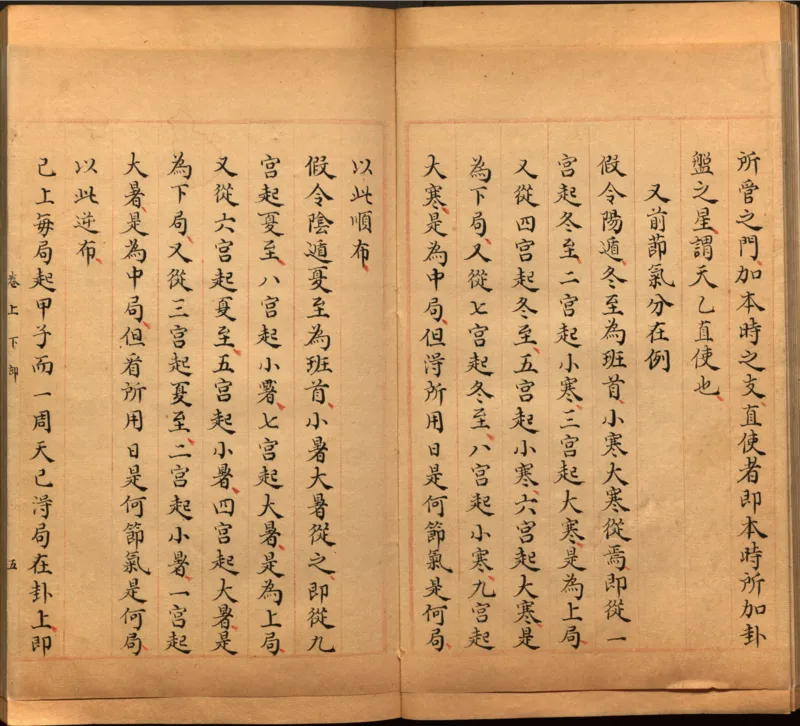 所管之門加本時之支直使者即本時所加卦
盤之星謂天乙直使也
又前節氣分在例
假令陽遁冬至為班首小寒大寒從焉即從一
宮起冬至二宮起小寒三宮起大寒是為上局
又從四宮起冬至五宮起小寒六宮起大寒是
為下局又從七宮起冬至八宮起小寒九宮起
大寒是為中局但淂所用日是何節氣是何局
以此順布
假令陰遁夏至為班首小暑大暑從之即從九
宮起夏至八宮起小暑七宮起大暑是為上局
又從六宮起夏至五宮起小暑四宮起大暑是
為下局又從三宮起夏至二宮起小暑一宮起
大暑是為中局但看所用日是何節氣是何局
以此逆布
已上每局起甲子而一周天已淂局在卦上即
卷上 下 五